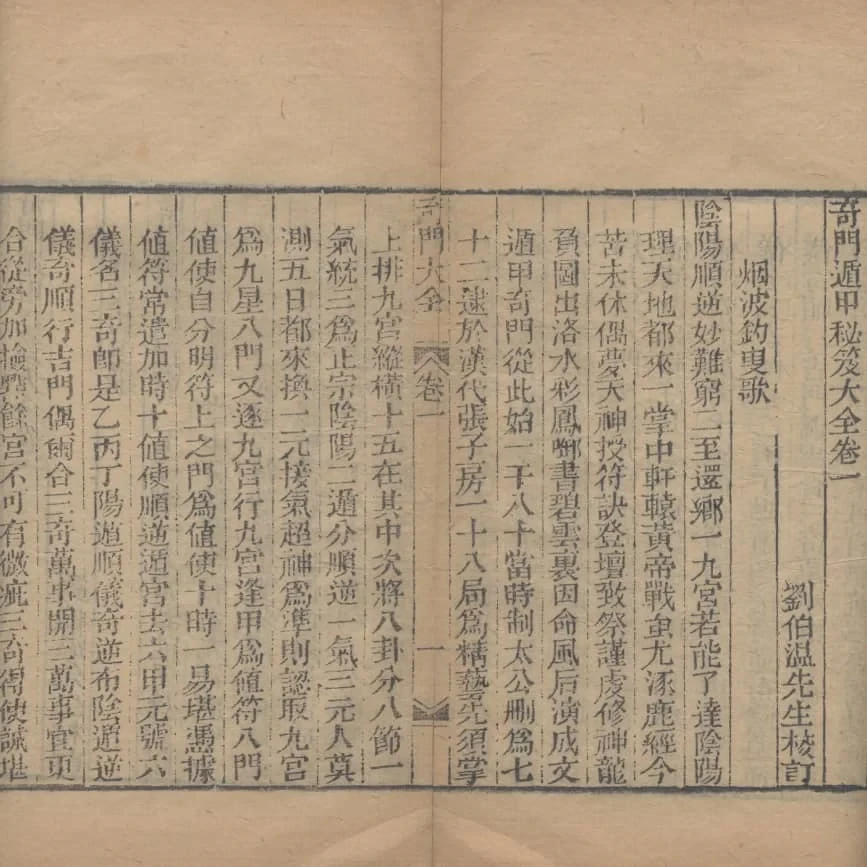 奇門遁甲秘笈大全卷一
劉伯温先生校訂
烟波釣叟歌
陰陽順逆妙難窮二至還鄉一九宮若能了達陰陽
理天地都來一掌中軒轅黃帝戰蚩尤涿鹿經今
苦未休偶夢天神授符訣登壇致祭謹虔修神龍
負圖出洛水彩鳳啣書碧雲裏因命風后演成文
遁甲奇門從此始一千八十當時制太公刪爲七
十二逮於漢代張子房一十八局爲精藝先須掌
奇門大全
卷一
一
上排九宮縱橫十五在其中次將八卦分八節一
氣統三爲正宗陰陽二遁分順逆一氣三元人莫
測五日都來換一元接氣超神爲準則認取九宮
爲九星八門又逐九宮行九宮逢甲爲值符八門
值使自分明符上之門爲值使十時一易堪憑據
值符常遣加時十值使順逆遁宮去六甲元號六
儀名三奇即是乙丙丁陽遁順儀奇逆布陰遁逆
儀奇順行吉門偶爾合三奇萬事開三萬事宜更
合從旁加檢㸃餘宮不可有微疵三奇得使誠堪